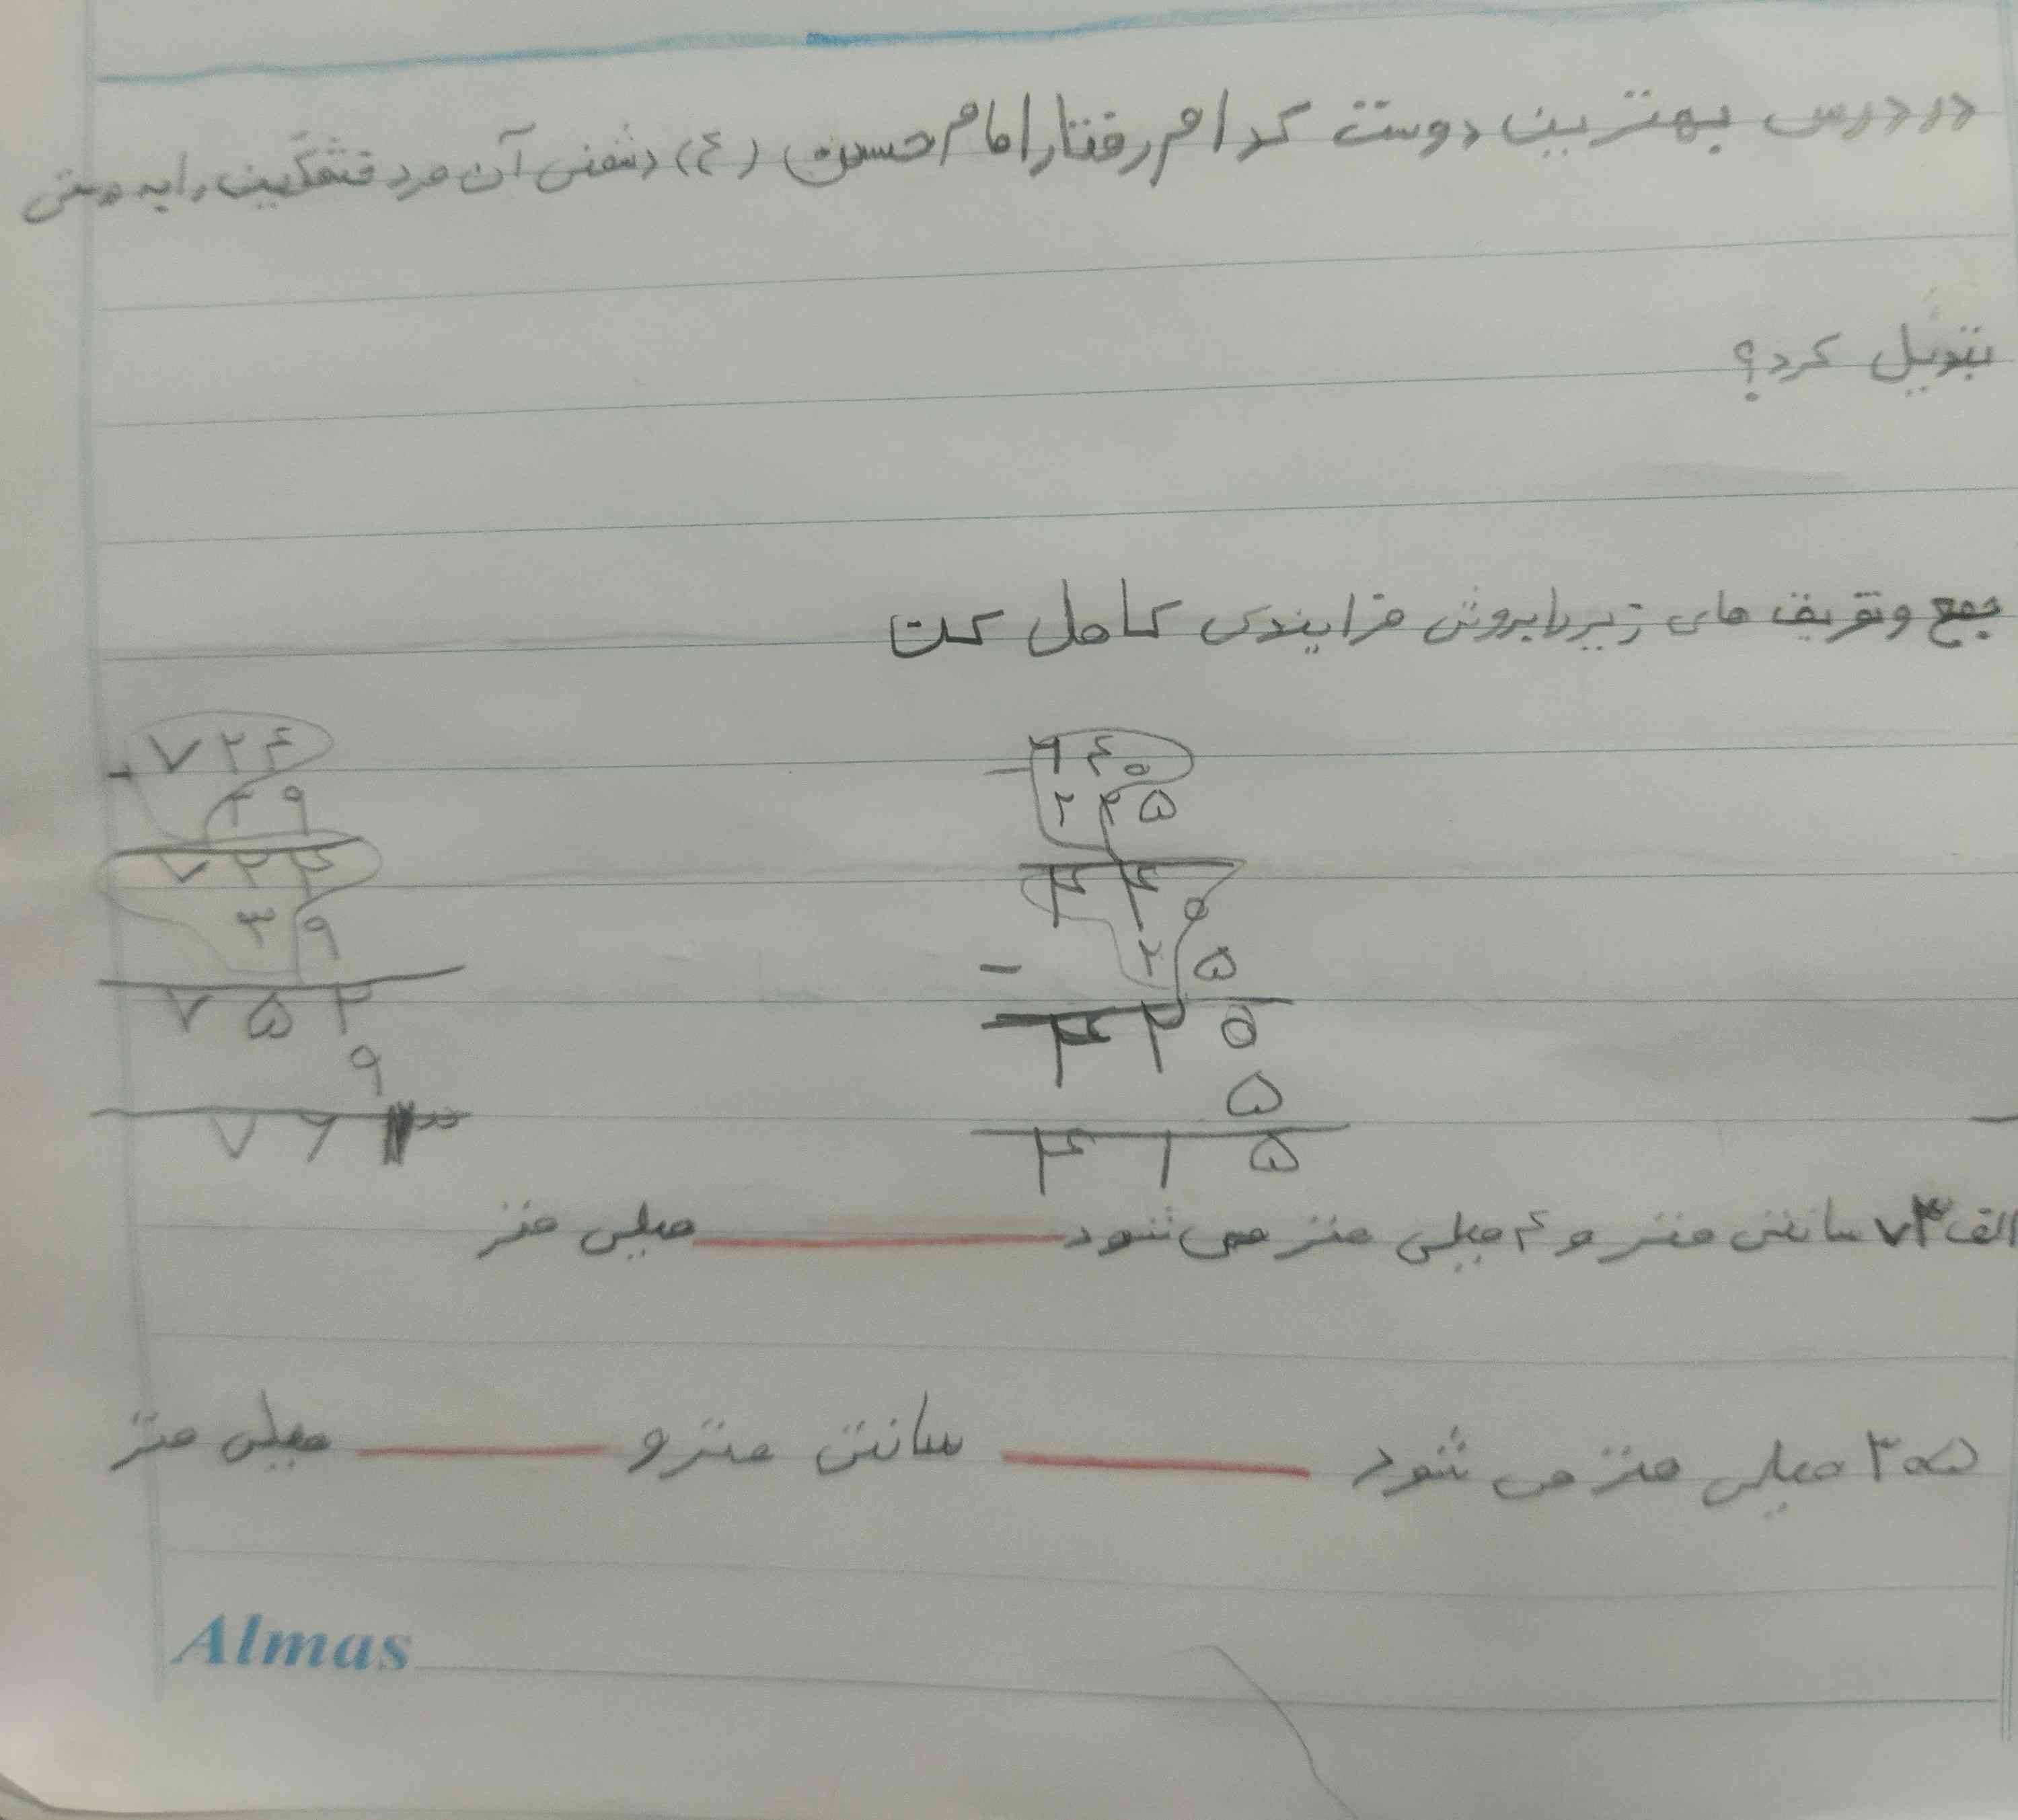 در درس بهترین دوست کدام رفتار امام حسین (ع) دشمنی آن مرد خشمگین را به دوستی
تبدیل کرد؟
جمع و تفریق های زیر را بروش فرایندی کامل کن
۶۴۰ ۷۲۴
۲۲۵ ۳۹
۴۴۰ ۷۲۴
۲۵ ۳۹
۴۲۰ ۷۵۴
۵ ۹
۴۱۵ ۷۶۳
الف ۷۳ سانتی متر و ۴ میلی متر می شود میلی متر
۳۰۵ میلی متر می شود سانتی متر و میلی متر
Almas